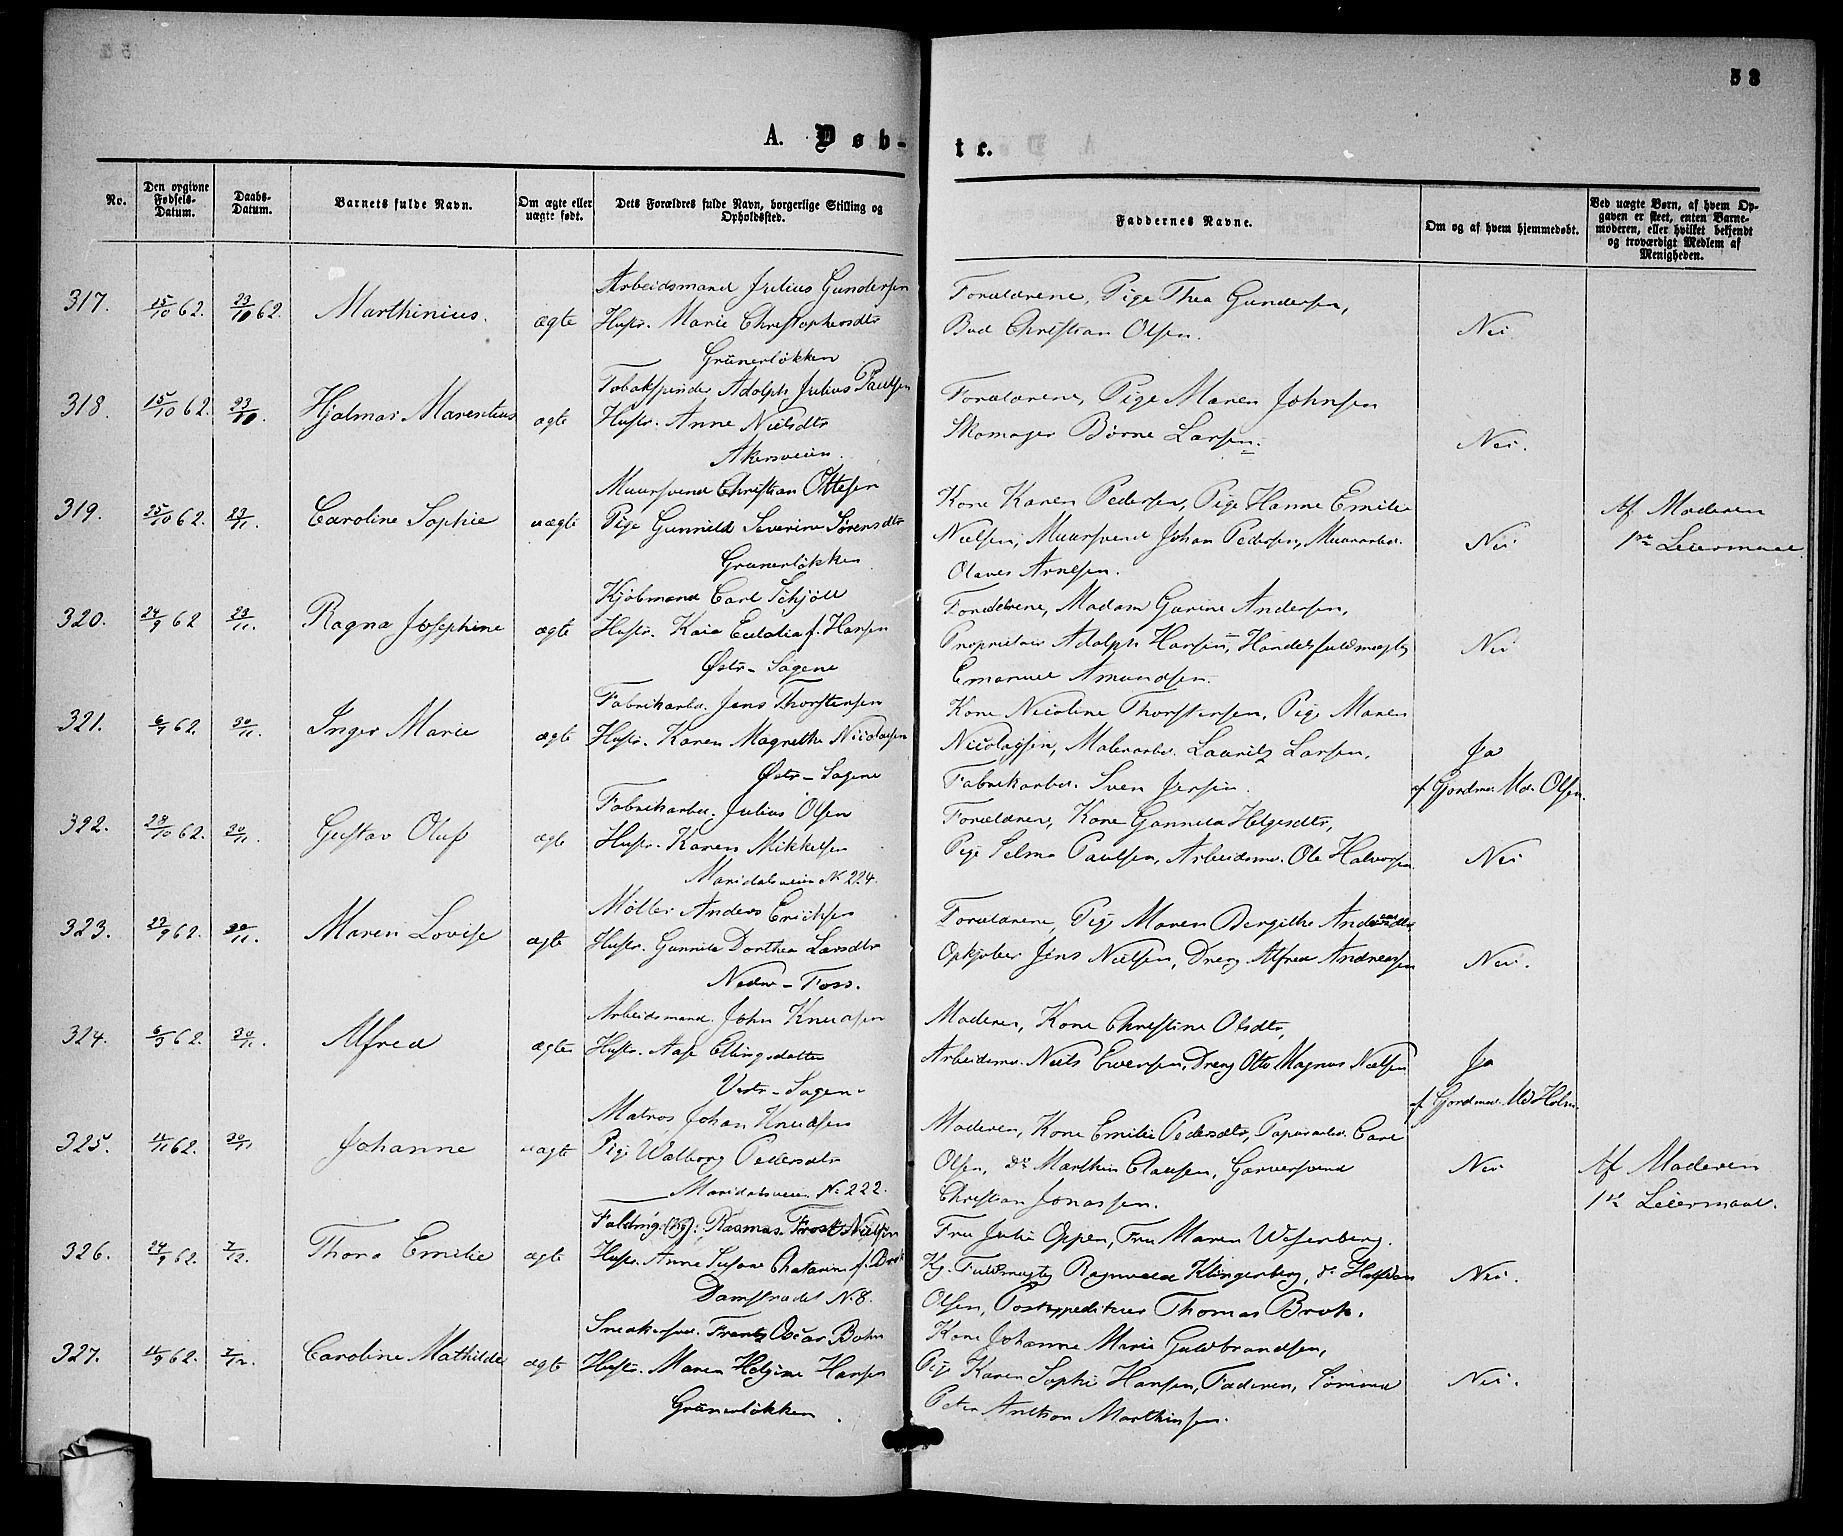 53
A. Døb-
te.
No.
Den opgivne Fødsels-Datum.
Daabs-Datum.
Barnets fulde Navn.
Om ægte eller uægte født.
Dets Forældres fulde Navn, borgerlige Stilling og Opholdssted.
Faddernes Navne.
Om og af hvem hjemmedøbt.
Ved uægte Børn, af hvem Opgaven er skeet, enten Barnemoderen, eller hvilket bekjendt og troværdigt Medlem af Menigheden.
317. 15/10 62. 23/10 62. Marthinius. ægte
Arbeidsmand Julius Gundersen
Hustr. Marie Christophersdtr
Grünerløkken
Forældrene, Pige Thea Gundersen,
Bud Christian Olsen.
Nei.
318. 15/10 62. 23/10. Hjalmar Marentius ægte
Tobakspinder Adolph Julius Paulsen
Hustr. Anne Nielsdtr
Akersveien.
Forældrene, Pige Maren Johnsen
Skomager Børne Larsen.
Nei.
319. 25/10 62. 23/11. Caroline Sophie uægte
Muursvend Christian Ottesen
Pige Gunnild Severine Sørensdtr
Grünerløkken
Kone Karen Pedersen, Pige Hanne Emilie
Nielsen, Muursvend Johan Pedersen, Muurarbei.
Olaves Arnesen.
Nei
Af Moderen
1ste Leiermaal.
320. 24/9 62 23/11. Ragna Josephine ægte
Kjøbmand Carl Schjøll
Hustr. Kaia Eulalia f. Hansen
Østr-Sagene
Forældrene, Madam Gurine Andersen,
Proprietair Adolph Hansen, Handelsfuldmægtig
Emanuel Amundsen.
Nei
321. 6/9 62. 30/11. Inger Marie ægte
Fabrikarbei. Jens Thorstensen
Hustr. Karen Magrethe Nicolaisen
Østr-Sagene
Kone Nicoline Thorstensen, Pige Maren
Nicolaysen, Malerarbei. Lauritz Larsen,
Fabrikarbei. Sven Jensen.
Ja
af Gjordm. Md. Olsen.
322. 28/10 62. 30/11. Gustav Oluf ægte
Fabrikarbei. Julius Olsen
Hustr. Karen Mikkelsen
Maridalsveien N. 224.
Forældrene, Kone Gunnild Helgesdtr,
Pige Selma Paulsen, Arbeidsm. Ole Halvorsen
Nei
323. 23/9 62. 30/11. Maren Lovise ægte
Møller Anders Erichsen
Hustr. Gunnild Dorthea Larsdtr
Nedre-Foss.
Forældrene, Pige Maren Bergithe
Opkjøber Jens Nielsen, Dreng Alfred Andreasen
Nei.
324. 6/9 62. 30/11. Alfred ægte
Arbeidsmand. John Knudsen
Hustr. Aase Ellingsdatter
Vestr-Sagene
Moderen, Kone Christine Olsdtr,
Arbeidsm. Niels Evensen, Dreng Otto Magnus Nielsen
Ja
af Gjordm. Md Holm.
325. 11/11 62. 30/11 Johanne uægte
Matros Johan Knudsen
Pige Walborg Pedersdtr
Maridalsveien N. 222.
Moderen, Kone Emilie Pedersdtr, Papirarbei. Carl
Olsen, do Marthin Clausen, Garversvend
Christian Jonassen.
Nei
Af Moderen
1ste Leiermaal.
326. 24/9 62. 7/12. Thora Emilie ægte
Rasmus Frost Nielsen
Hustr. Anne Susane Chatarine f. Brok
Damstradet N. 8.
Fru Julie Oppen, Fru Maren Wesenberg.
Kg. Fuldmægtig Ragnvald Klingenberg, do Halfdan
Olsen, Postexpediteur Thomas Brok.
Nei.
327. 11/9 62. 7/12. Caroline Mathilde ægte
Snedkersv. Frantz Oscar Bohn
Hustr. Maren Helgine Hansen
Grünerløkken.
Kone Johanne Marie Guldbrandsen,
Pige Karen Sophie Hansen, Faderen, Sømand
Peter Anthon Marthinsen.
Nei.